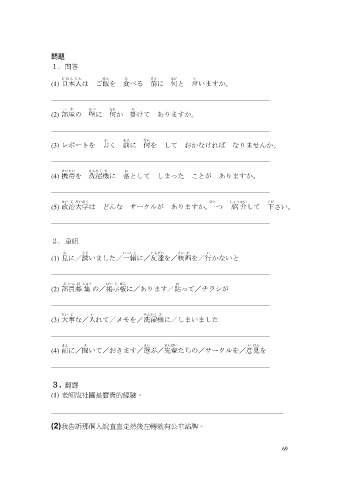 問題
1. 問答
(1) 日本人は ご飯を 食べる 前に 何と 言いますか。
(2) 部屋の 壁に 何か 掛けて ありますか。
(3) レポートを 書く 前に 何を して おかなければ なりませんか。
(4) 携帯を 洗濯機に 落として しまった ことが ありますか。
(5) 政治大学は どんな サークルが ありますか。一つ 紹介して 下さい。
2. 重組
(1) 見に／誘いました／一緒に／友達を／映画を／行かないと
(2) 部員募集の／掲示板に／あります／貼って／チラシが
(3) 大事な／入れて／メモを／洗濯機に／しまいました
(4) 前に／聞いて／おきます／選ぶ／先輩たちの／サークルを／意見を
3. 翻譯
(1) 老師說社團是寶貴的經驗。
(2) 我告訴那個人說直直走然後左轉就有公車站牌。
69